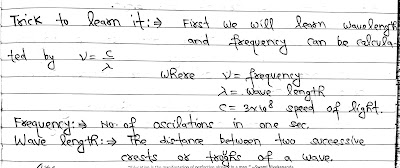 Trick to learn it:→ First we will learn wavelength
and frequency can be calcula-
ted by ν= c/λ
where ν= frequency
λ= wave length
c= 3×10⁸ speed of light.
Frequency:→ No. of oscilations in one sec.
Wave length:→ The distance between two successive
crests or troughs of a wave.